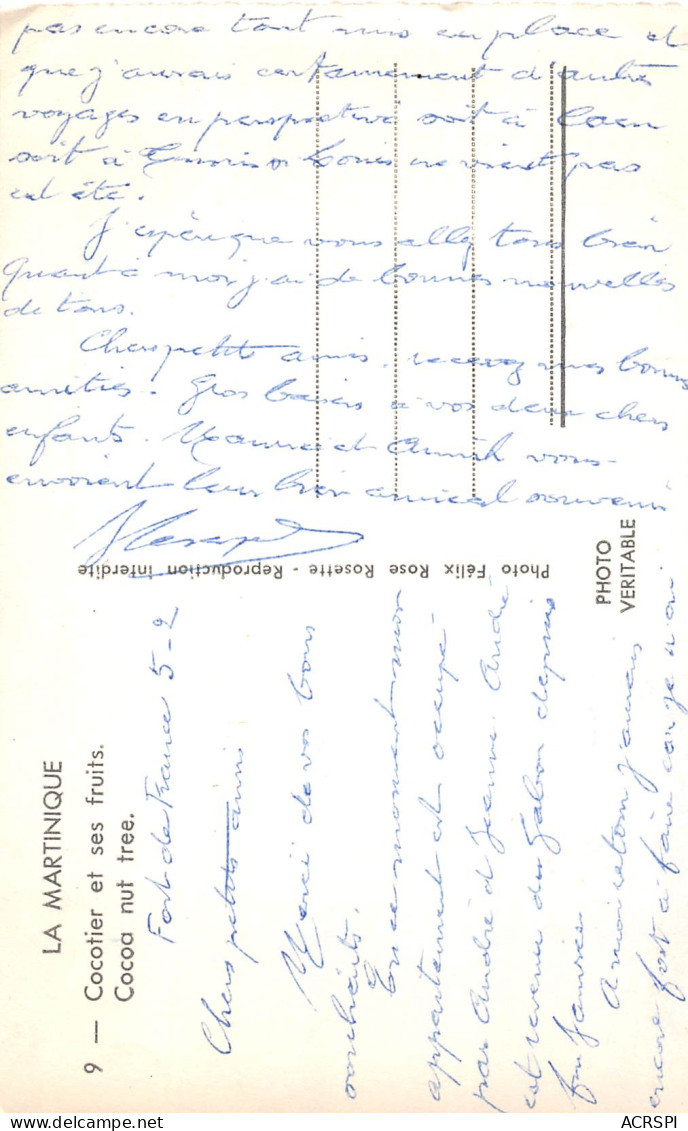 LA MARTINIQUE
9 — Cocotier et ses fruits.
Cocoa nut tree.
Fort de France 5-2
Chers petits amis
Merci de vos bons
souhaits.
En ce moment mon
appartement est occupé
par André et Jeanne. André
est revenu du Gabon depuis
fin Janvier.
A mon retour j'aurais
encore fort à faire car je n'ai
pas encore tout mis en place et
que j'aurais certainement d'autres
voyages en perspective soit à Caen
soit à Tunis si Louis ne vient pas
cet été.
J'espère que vous allez tous bien
Quant à moi j'ai de bonnes nouvelles
de tous.
Chers petits amis, recevez mes bonnes
amitiés. Gros baisers à vos deux chers
enfants. et vous
envoient leur bien amical souvenir
Photo Félix Rose Rosette - Reproduction interdite
PHOTO
VERITABLE
ACRSPI